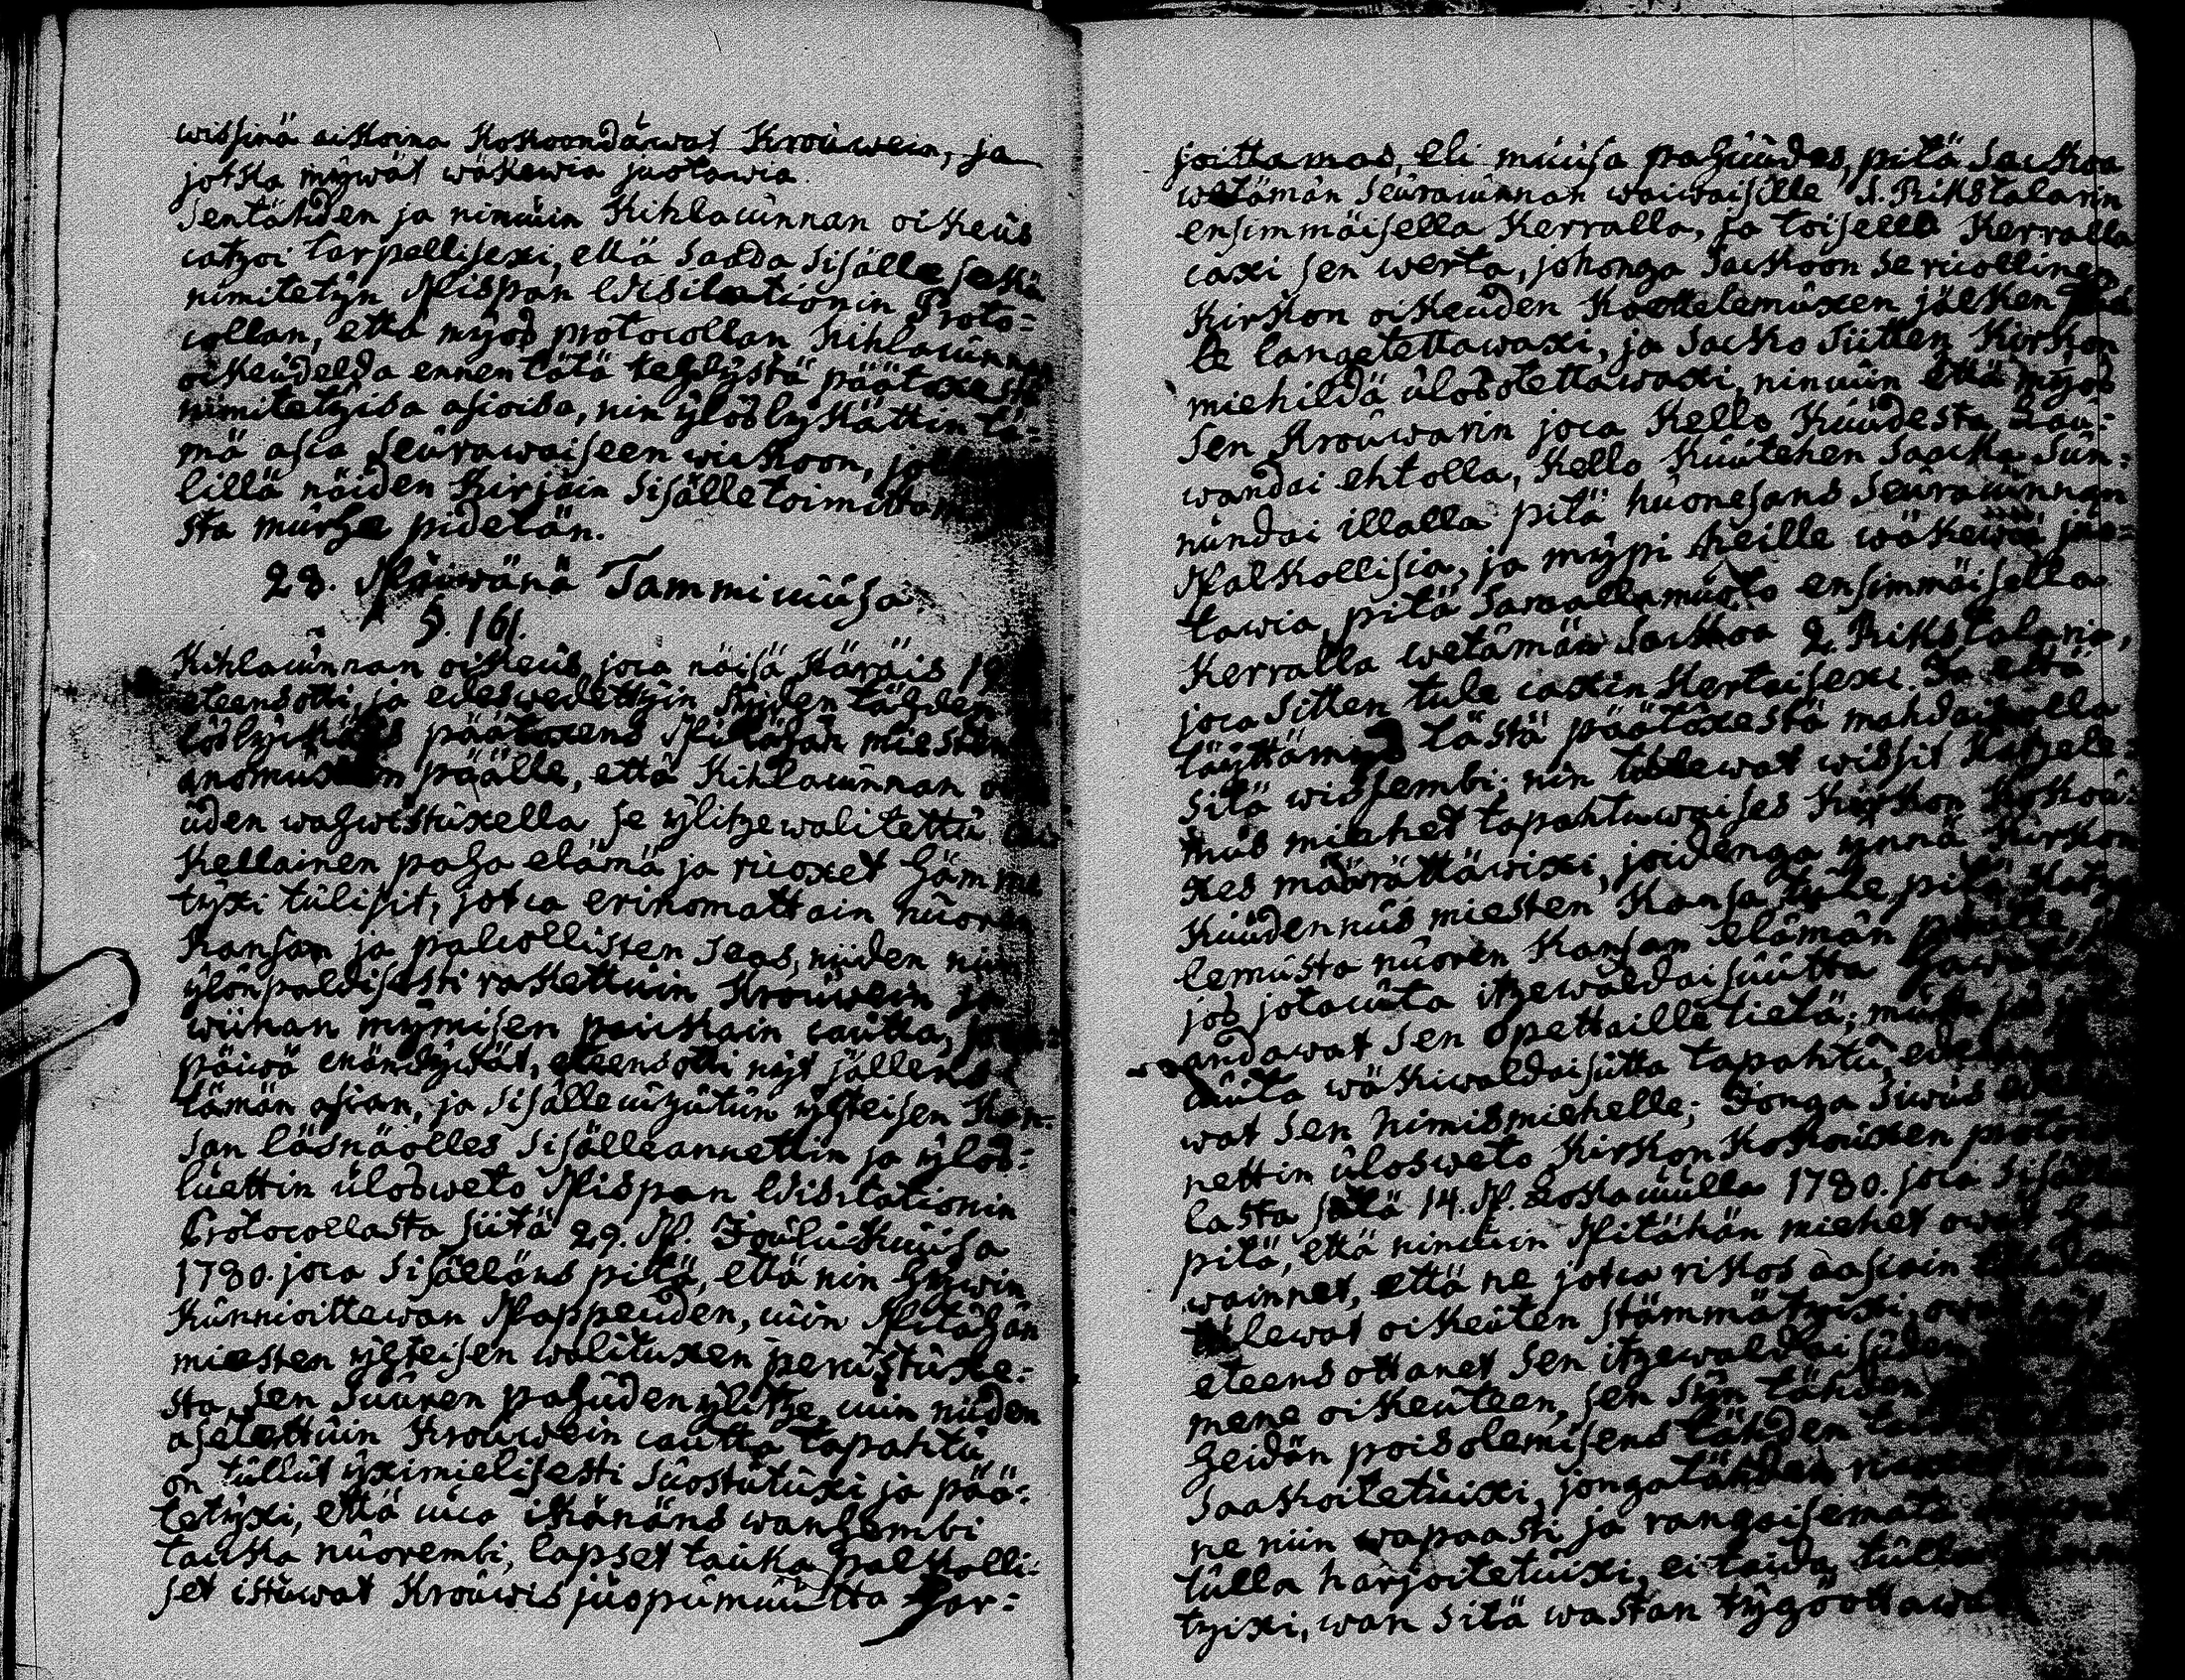 wissinä aikoina Kokoondåwat Krouwein, ja
jotka myywät wäkewiä juotawia.
Sentähden ja nincuin Kihlacunnan oikeus
catzoi tarpellisexi, että saada sisälle sekä
nimitetyn Pispan Visitationin Proto-
collan, että myös protocollan Kihlacunnan
oikeudelda ennen tätä tehdystä päätöxestä
nimitetyisä asioisa, nin ylöslyckättin tä-
mä asia Seurawaiseen wickoon,
lillä näiden Kirjain sisälletoimittami
sta murhe pidetän.
28. Päiwänä Tammicuusa.
§. 161.
Kihlacunnan oikeus joca näisä Käräis
eteensotti, ja edeswedettyin syiden tähden
löslyckäis päätöxens Pitäjän miesten
anomuxen päälle, että Kihlacunnan
uden wahwistuxella se ylitzewalitettu
Kellainen paha elämä ja ricoxet hämme
tyxi tulisit, jotca erinomattain nuoren
Kansan ja palcollisten seas, niiden niin
ylönpaldisesti rakettuin Krouwein ja
wiinan myymisen paickain cautta,
päiwä enändywät, eteensotti nyt jällens
tämän asian, ja sisällecuzutun yhteisen Kan-
san läsnäolles sisälleannettin ja ylös-
luettin ulosweto Pispan Visitationin
Protocollasta siitä 29. P. Joulukuusa
1780. joca sisälläns pitä, että nin hywin
Kunnioittewan Pappeuden, cuin Pitäjän
miesten yhteisen walituxen perustuxe-
sta, sen suuren pahuden ylitze, cuin niiden
asetettuin Krouwein cautta tapahtu
on tullut yximielisesti suostutuxi ja pää-
tetyxi, että cuca ikänäns wanhembi
taicka nuorembi, lapset taicka palckolli-
set istuwat Krouwis juopumuutta har-
joittamas, eli muusa pahuudes, pitä sackoa
wetämän Seuracunnan waiwaisille 1. Rikstalarin
ensimmäisellä Kerralla, ja toisella Kerralla
caxi sen werta, johonga Sackoon se ricollinen
Kirkon oikeuden Koettelemuxen jälken
le langetettawaxi, ja sacko siitten Kirkon
miehildä ulosotettawaxi, nincuin että myös
Sen Krouwarin joca Kello Kuudesta Lau-
wandai ehtolla, Kello Kuutehen saacka Sun-
nundai illalla pitä huonesans Seuracunnan
Palkollisia, ja myypi heille wäkewiä juo-
tawia, pitä samallamuoto ensimmäisellä
Kerralla wetämän Sackoa 2. Rikstalaria,
joca sitten tule caxin Kertaisexi. Ja että
täyttämys tästä päätöxestä mahdais olla
sitä wissembi; nin tulewat wissit Katzele-
mus miehet tapahtuwaises Kirkon Kokou-
xes määrättäwixi, joidenga ynnä Kirkon
Kuudennus miesten Kansa tule pitä Katze
lemusta nuoren Kansan elämän päälle,
jos jotacuta itzewaldaisuutta hawaitan
andawat sen opettaille tietä; mutta jos
cuta wäkiwaldaisutta tapahtu, edesan
wat sen nimismiehelle; Jonga siwus edesan
nettin ulosweto Kirkon Kokouxen protocol
lasta siitä 14. P. Lokakuulla 1780. joca sisällän
pitä, että nincuin Pitähän miehet owat ha
wainnet, että ne jotca rikos aasiain tähden
tulewat oikeuten stämmätyixi, owat nyt
eteens ottanet sen itzewaldaisuden
mene oikeuteen, sen syyn tähden
heidän poisolemisens tähden taida
Saakoitetuixi, jongatähden ricoxet
ne niin wapaasti ja rangaisemata
tulla harjoitetuixi, ei taida tulla
tyixi, wan sitä wastan tygöottawat